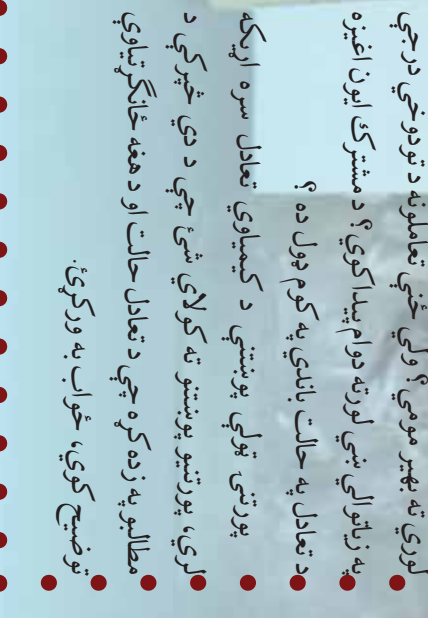 لوري ته بهير مومي؟ ولې ځنې تعاملونه د تودوخې درجې
په زياتوالي ښي لورته دوام پيدا کوي؟ د مشترک ايون اغېزه
د تعادل په حالت باندې په کوم ډول ده؟
پورتنۍ ټولې پوښتنې د کيمياوي تعادل سره اړيکه
لري، پورتنيو پوښتنو ته کولای شئ چې د دې څپرکي د
مطالبو په زده کړه چې د تعادل حالت او د هغه ځانګړتياوې
توضيح کوي، ځواب به ورکړئ.